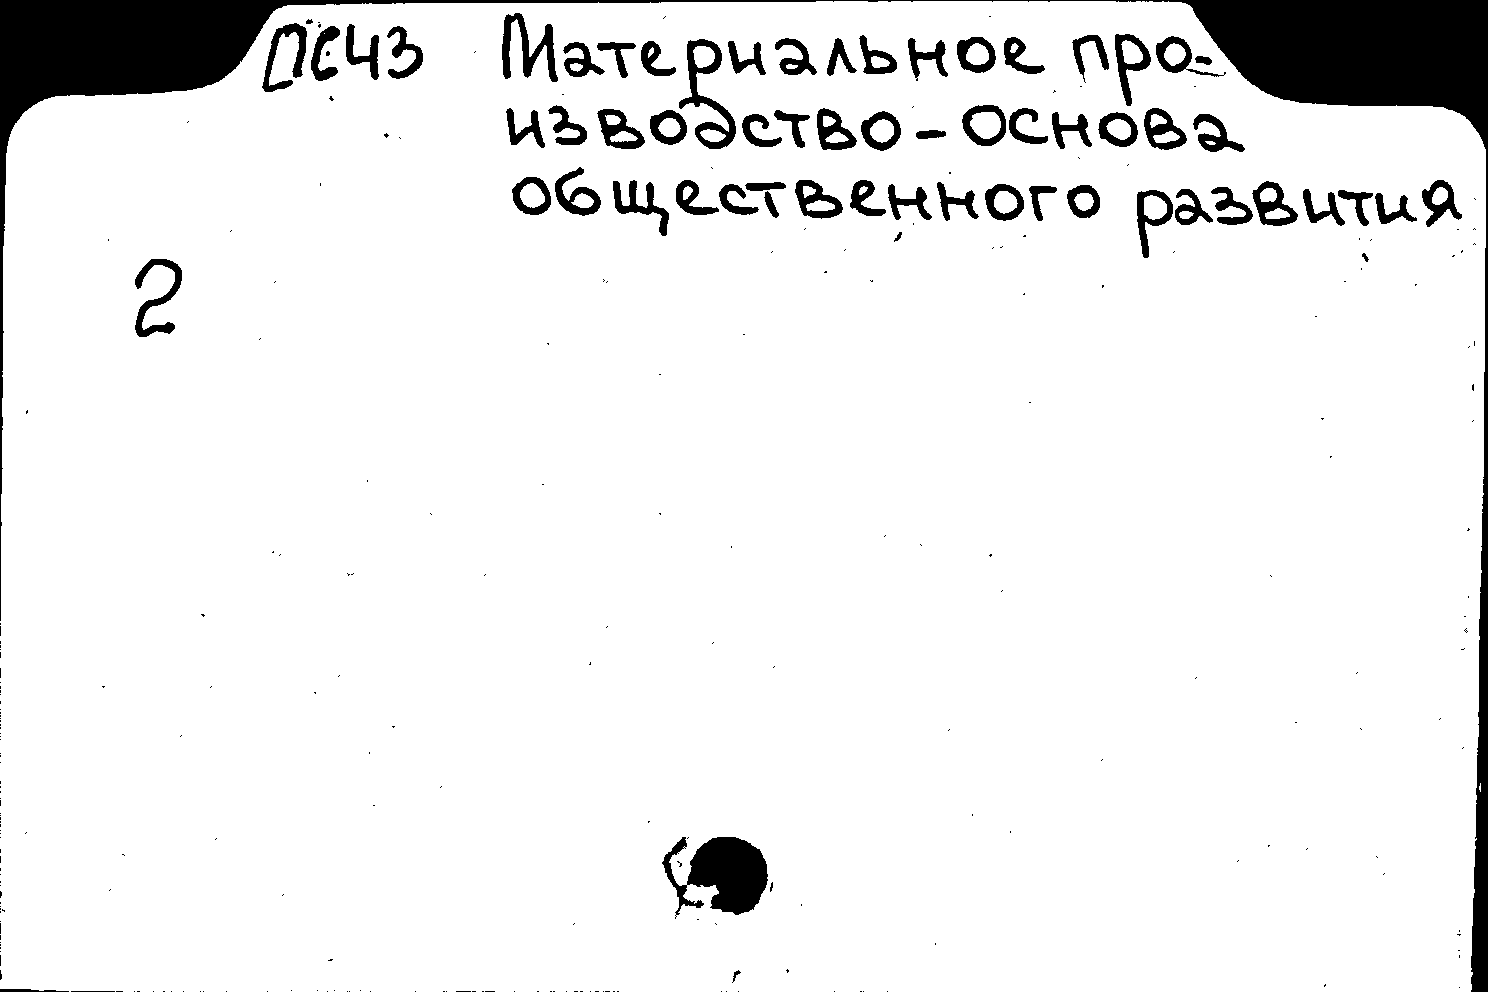 ПС43 Материальное про-
изводство - основа
общественного развития
2